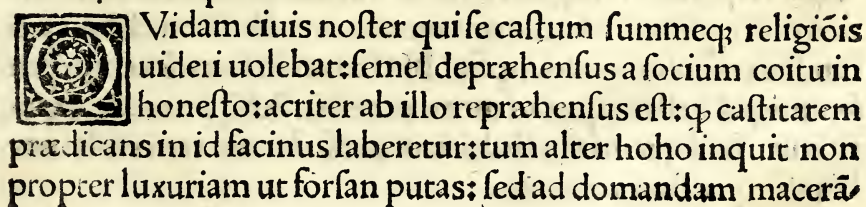 QVidam ciuis noſter qui ſe caſtum ſummeqꝫ religiōis
uideri uolebat:ſemel depræhenſus a ſocium coitu in
honeſto:acriter ab illo repræhenſus eſt:ꝙ caſtitatem
prædicans in id facinus laberetur:tum alter hoho inquit non
propter luxuriam ut forſan putas: ſed ad domandam macerā